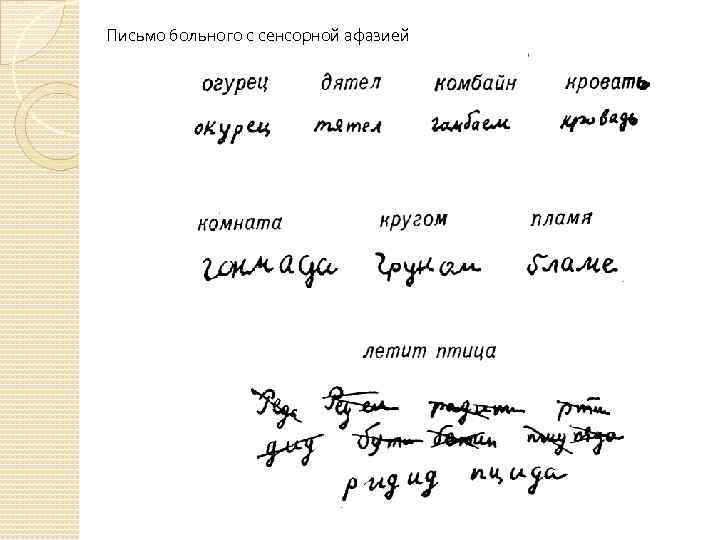 Письмо больного с сенсорной афазией
огурец дятел комбайн кровать
окурец тятел гамбаем кровадь
комната кругом пламя
гонмада груком бламе
летит птица
Реда радити рти
дид бути
ридид пцида